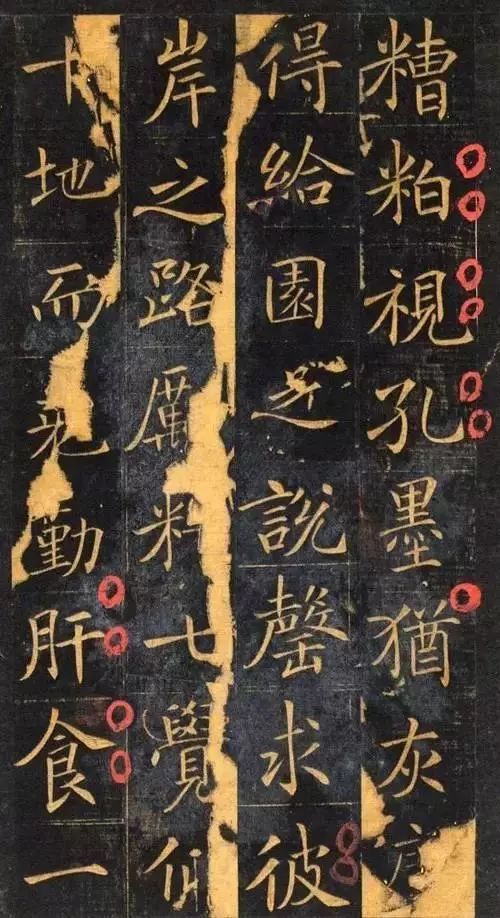 糟粕視孔墨猶灰
得給園之說罄求彼
岸之路厲料七覺仰
十地而勤肝食一